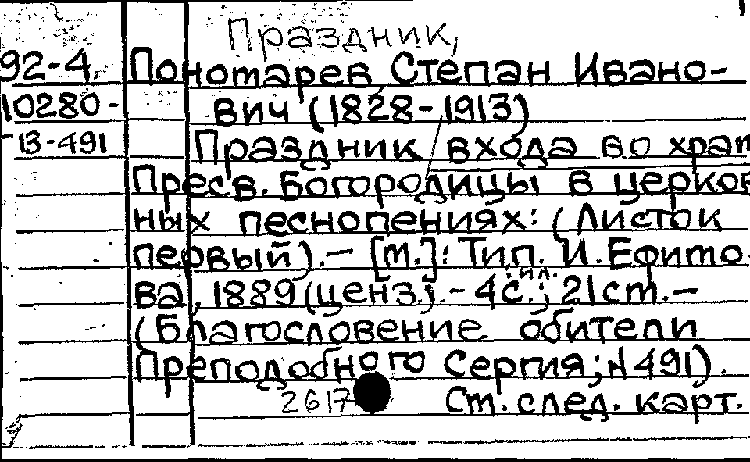 Праздник,
92-4 Пономарев, Степан Ивано-
10280- вич (1828-1913)
13-491 Праздник входа во храм
Пресв. Богородицы в церков
ных песнопениях: (Листок
первый).— [М.]: Тип. И. Ефимо
ва, 1889 (ценз.).- 4с.: ил.; 21 см.—
(Благословение обители
Преподобного Сергия; № 491).
2617 См. след. карт.